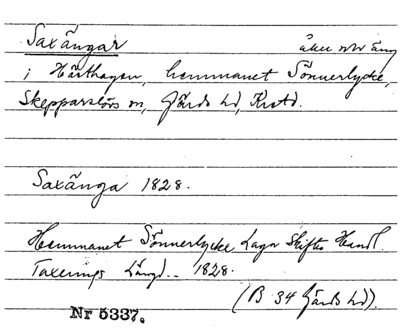 Saxängar åker och äng
i Hästhagen, hemmanet Sönnerlycke,
Skepparslövs sn, Gärds hd, Krstd.
Saxänga 1828.
Hemmanet Sönnerlycke Laga Skiftes Handl.
Taxerings Längd.. 1828.
(B 34 Gärds hd).
Nr 5337.